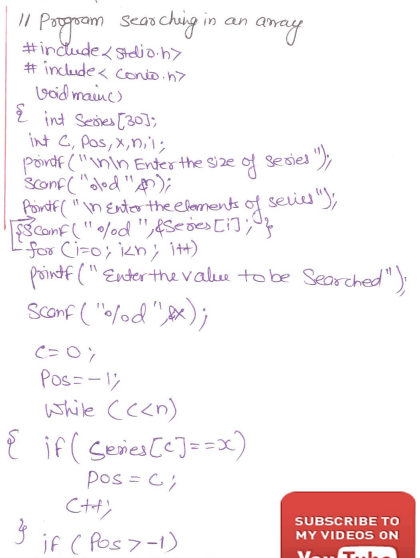 // Program searching in an array
#include<stdio.h>
# include< conio.h>
void main()
{ int Series[30];
int C, Pos, x, n, i;
printf("\n\n Enter the size of series");
scanf("%d",&n);
Printf("\n Enter the elements of series");
{Scanf("%d",&Series[i]; }
for (i=0; i<n; i++)
printf("Enter the value to be Searched");
Scanf("%d",&x);
C=0;
Pos=-1;
while (C<n)
{ if( Series[c]==x)
Pos = C;
C++;
}
if (Pos>-1)
SUBSCRIBE TO
MY VIDEOS ON
YouTube